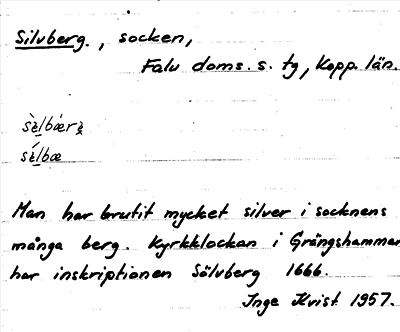 Silvberg., socken,
Falu doms. s. tg, Kopp. län.
sè̱lbærè̱
sé̱lbæ
Man har brutit mycket silver i socknens
många berg. Kyrkklockan i Grängshammar
har inskriptionen Sölvberg 1666.
Inge Kvist 1957.